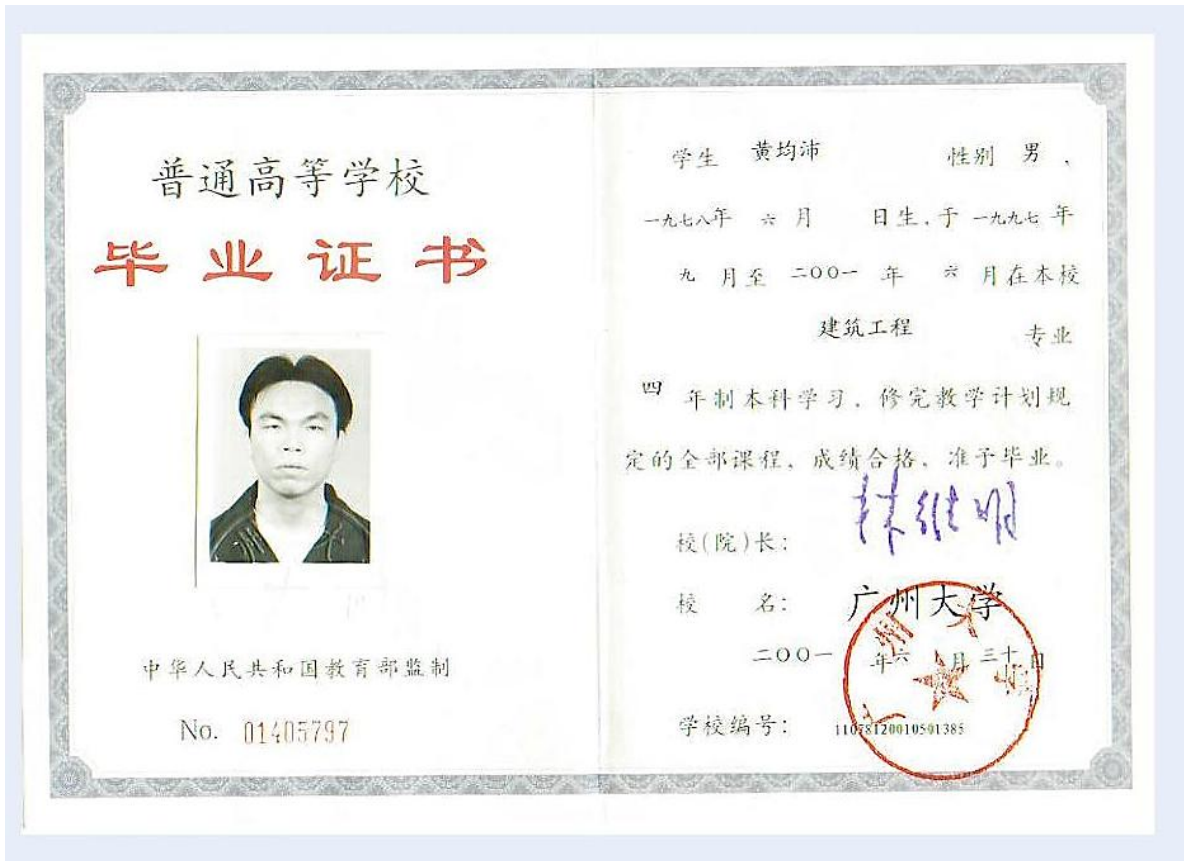 普通高等学校
毕业证书
中华人民共和国教育部监制
No. 01405797
学生 黄均沛 性别 男 ,
一九七八年 六 月 日生,于 一九九七 年
九 月至 二○○一 年 六 月在本校
建筑工程 专业
四 年制本科学习,修完教学计划规
定的全部课程,成绩合格,准予毕业。
校(院)长: 林维明
校 名: 广州大学
二○○一 年六 月三十日
学校编号: 11078120010501385
广州大学